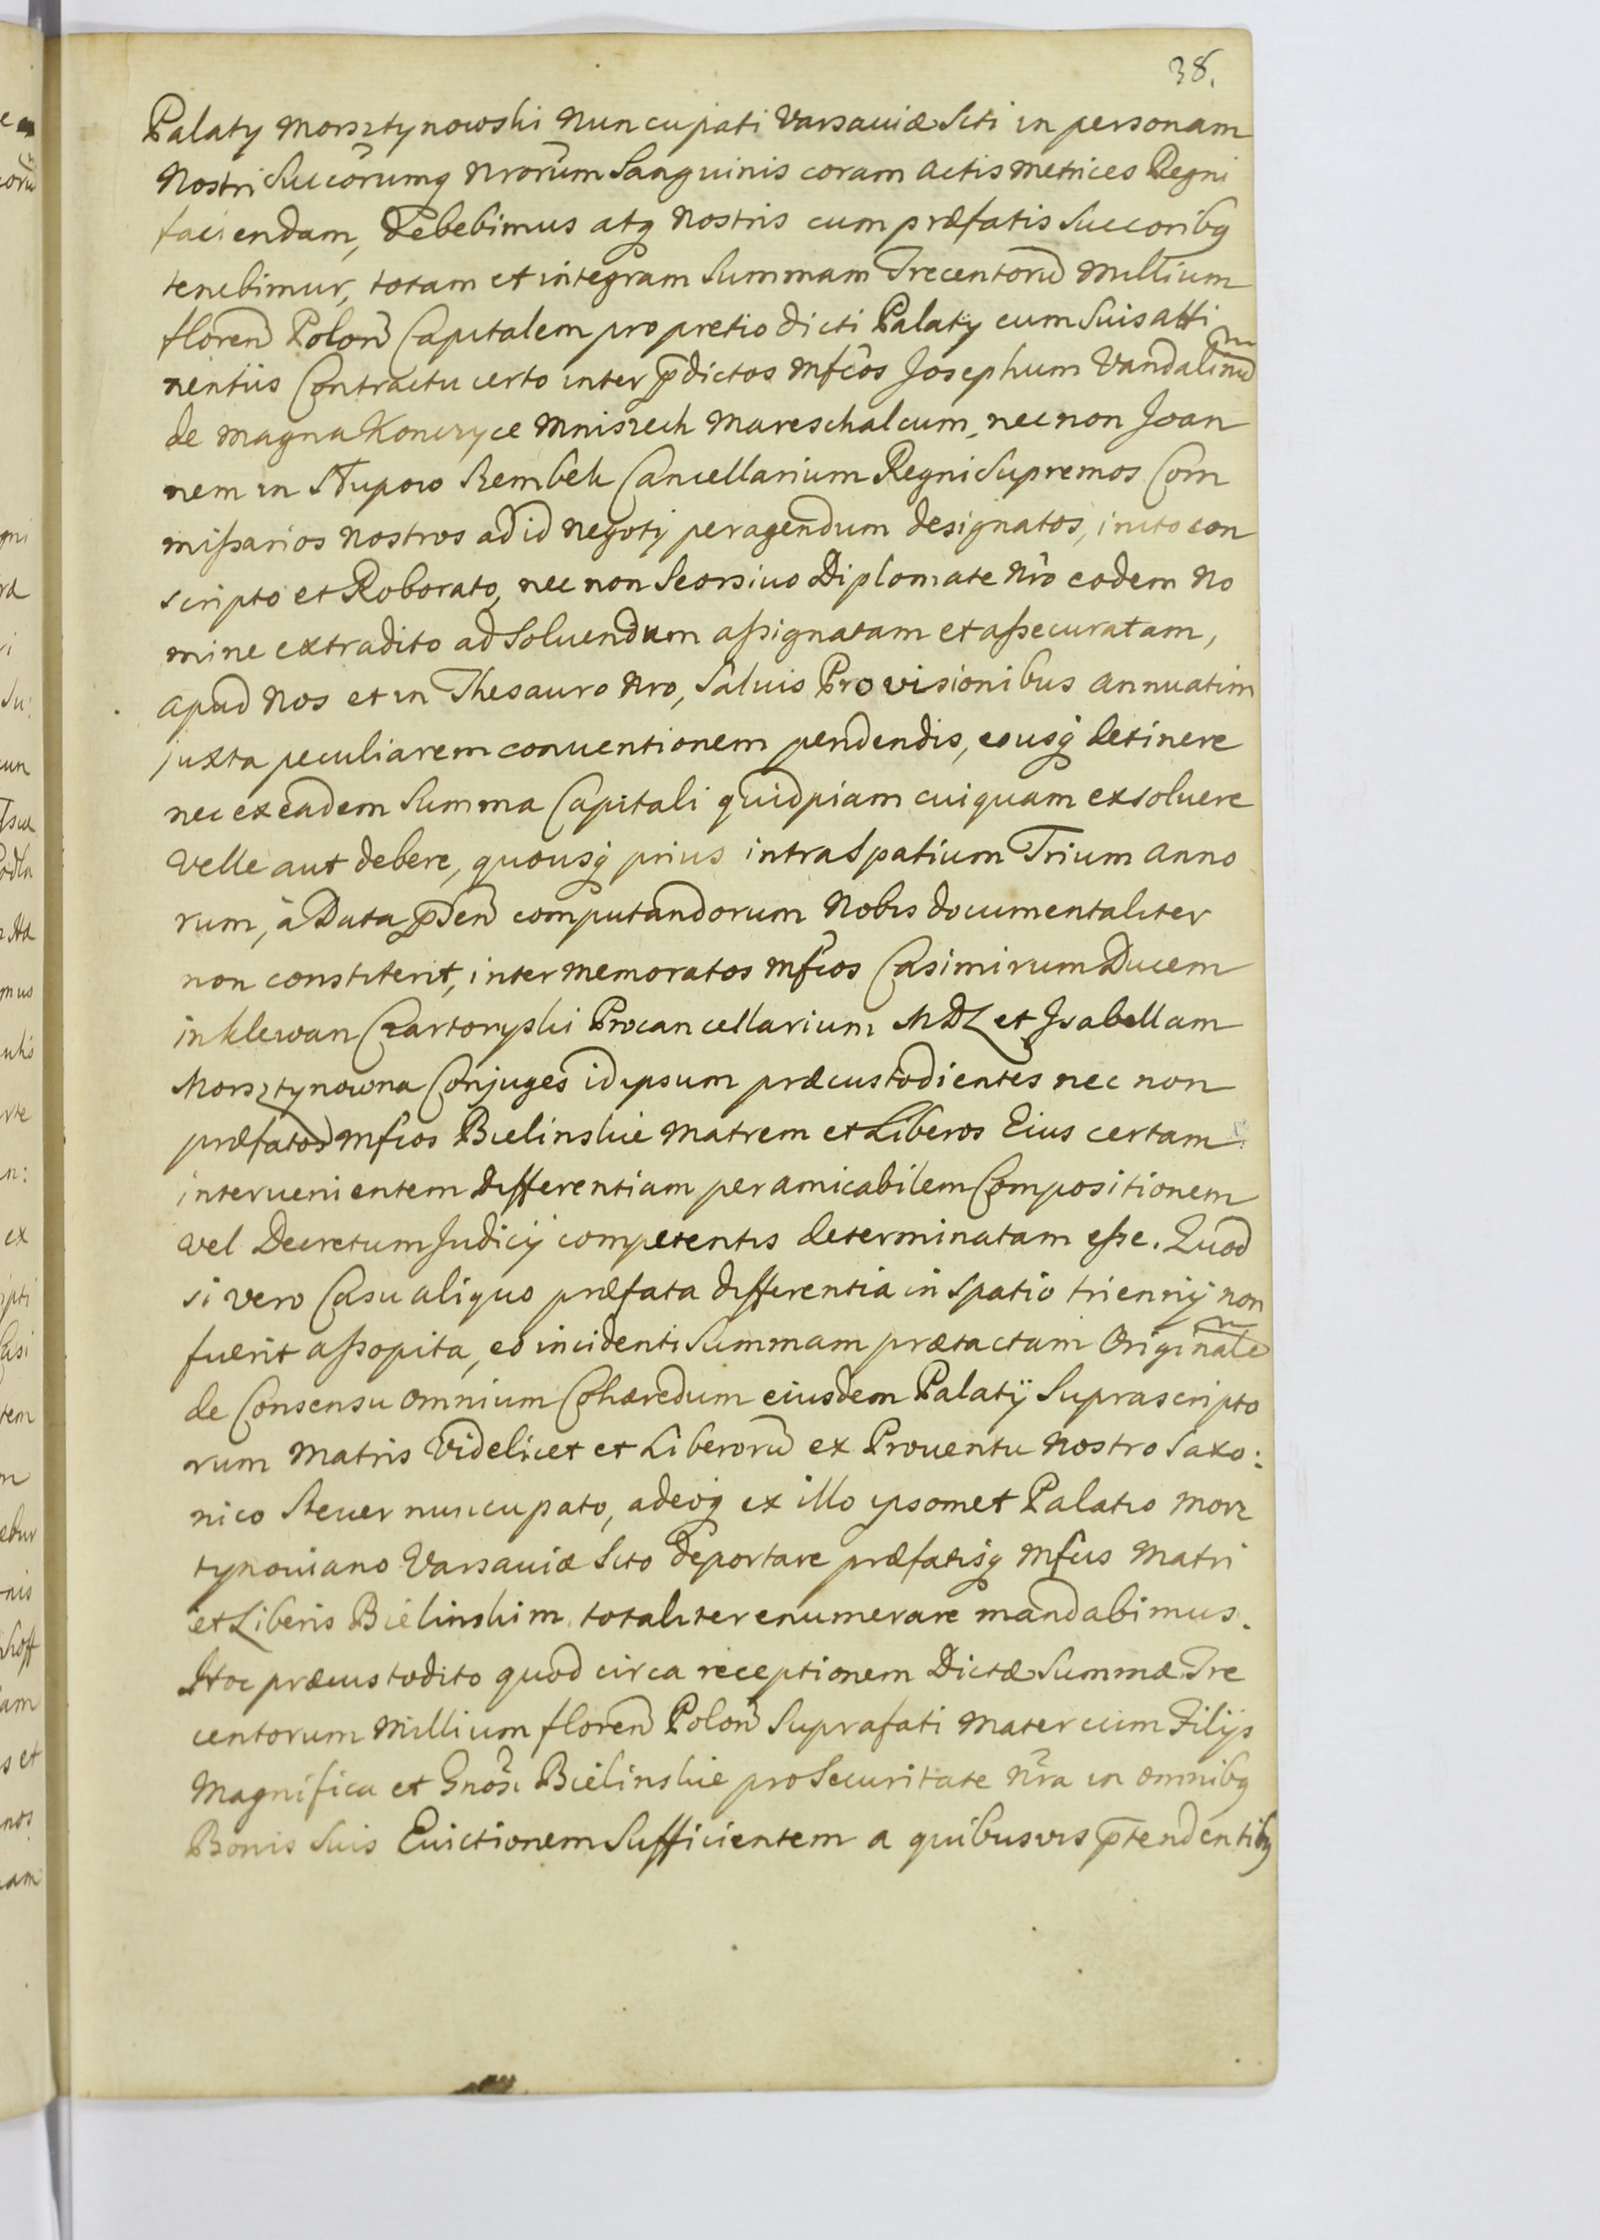 38.
Palaty Morsztynowski Nuncupati Varsauiæ Siti in personam
Nostri Succõrumq Nrõrum Sanguinis coram Actis Metrices Regni
faciendam, Debebimus atq Nostris cum præfatis Succoribq
tenebimur, totam et integram Summam Trecentorũ Millium
floreñ Poloñ Capitalem pro pretio dicti Palaty cum Suis atti
nentiis Contractu certo inter p̃dictos Mfcõs Josephum Vandalinũ
de Magna Konczyce Mniszech Mareschalcum, nec non Joan
nem in Słupow Szembek Cancellarium Regni Supremos Com
mißarios Nostros ad id Negotij peragendum designatos, inito con
scripto et Roborato, nec non Seorsiuo Diplomate Nrõ eodem No
mine extradito ad Soluendum aßignatam et aßecuratam,
apud Nos et in Thesauro Nro, Saluis Provisionibus annuatim
juxta peculiarem conuentionem pendendis, eousq detinere
nec ex eadem Summa Capitali quidpiam cuiquam exsoluere
Velle aut debere, quousq prius intra Spatium Trium anno
rum, à Data p̃señ computandorum Nobis documentaliter
non constiterit, inter memoratos Mfcõs Casimirum Ducem
in Klewan Czartoryski Procancellarium MDL et Isabellam
Morsztynowna Conjuges idipsum præcustodientes nec non
præfatos Mfcos Bielinskie Matrem et Liberos Eius certam
interuenientem Differentiam per amicabilem Compositionem
vel Decretum Judicij competentis determinatam eße. Quod
si vero Casu aliquo præfata differentia in Spatio triennij non
fuerit aßopita, eo incidenti Summam prætactam Originalẽ
de Consensu omnium Cohæredum eiusdem Palatij Suprascripto
rum Matris Videlicet et Liberorũ ex Prouentu Nostro Saxo:
nico Steuer nuncupato, adeoq ex illo ipsomet Palatio Morz
tynoviano Varsauiæ Sito deportare præfatisq Mfcis Matri
et Liberis Bielinskim totaliter enumerare mandabimus.
Hoc præcustodito quod circa receptionem Dictæ Summæ Tre
centorum Millium floreñ Poloñ Suprafati Mater cum Filijs
Magnifica et Gnõsi Bielinskie pro Securitate Nrã in omnibq
Bonis Suis Euictionem Sufficientem a quibusvis p̃tendentibq